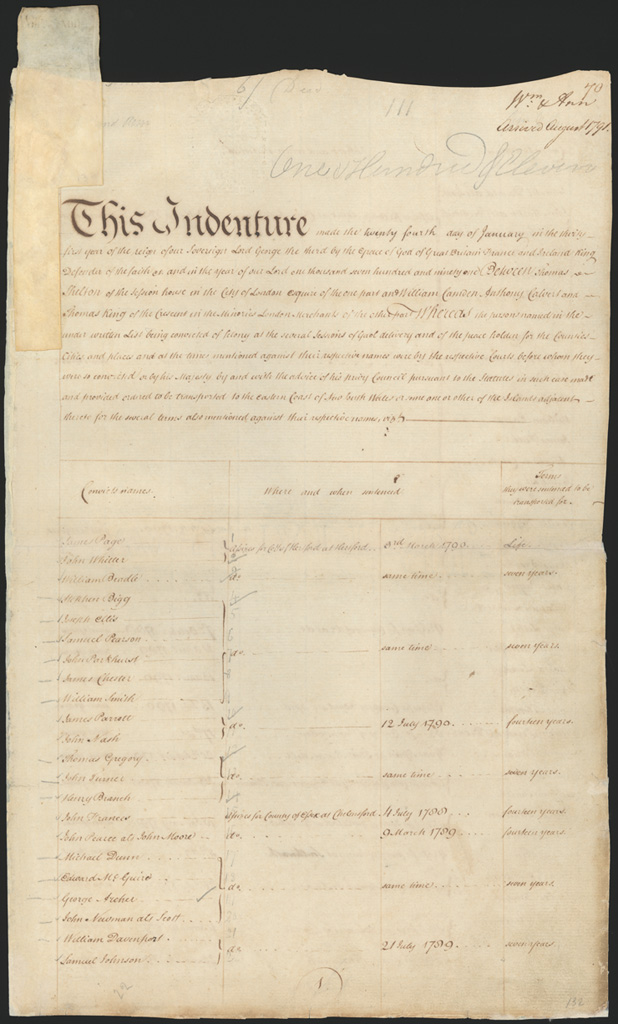 70
111
Wm & Ann
Arrived August 1791.
One Hundred & Eleven
This Indenture made the twenty fourth day of January in the thirty
first year of the reign of our Sovereign Lord George the third by the Grace of God of Great Britain France and Ireland King
Defender of the faith &c and in the year of our Lord one thousand seven hundred and ninety one Between Thomas
Shelton of the Session house in the City of London esquire of the one part and William Camden Anthony Calvert and
Thomas King of the Crescent in the Minories London Merchants of the other part Whereas the persons named in the
under written List being convicted of felony at the several Sessions of Gaol delivery and of the peace holden for the Counties
Cities and places and at the times mentioned against their respective names were by the respective Courts before whom they
were so convicted or by his Majesty by and with the advice of his privy Council pursuant to the Statutes in such case made
and provided ordered to be transported to the eastern Coast of New South Wales or some one or other of the Islands adjacent
thereto for the several terms also mentioned against their respective names,
Convicts names. Where and when sentenced Terms they were ordered to be transported for.
James Page
John Whitter Assizes for Co. of Hertford at Hertford 3rd March 1790 Life
William Bradle do. same time seven years.
Stephen Bigg
Joseph Ellis
Samuel Pearson do. same time seven years.
John Parkhurst
James Chester
William Smith
James Parrott do. 12 July 1790 fourteen years.
John Nash
Thomas Gregory
John Turner do. same time seven years.
Henry Branch
John Frances Assizes for County of Essex at Chelmsford 4 July 1788 fourteen years.
John Pearce als John Moore do. 9 March 1789 fourteen years.
Michael Dunn
Edward Mc.Guire do. same time seven years.
George Archer
John Newman als Scott
William Davenport do. 21 July 1789 seven years.
Samuel Johnson
22
1
132